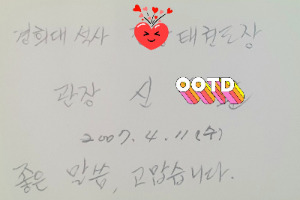 경희대 석사 태권도장
관장 신 OOTD
2007. 4. 11 (수)
좋은 말씀, 고맙습니다.